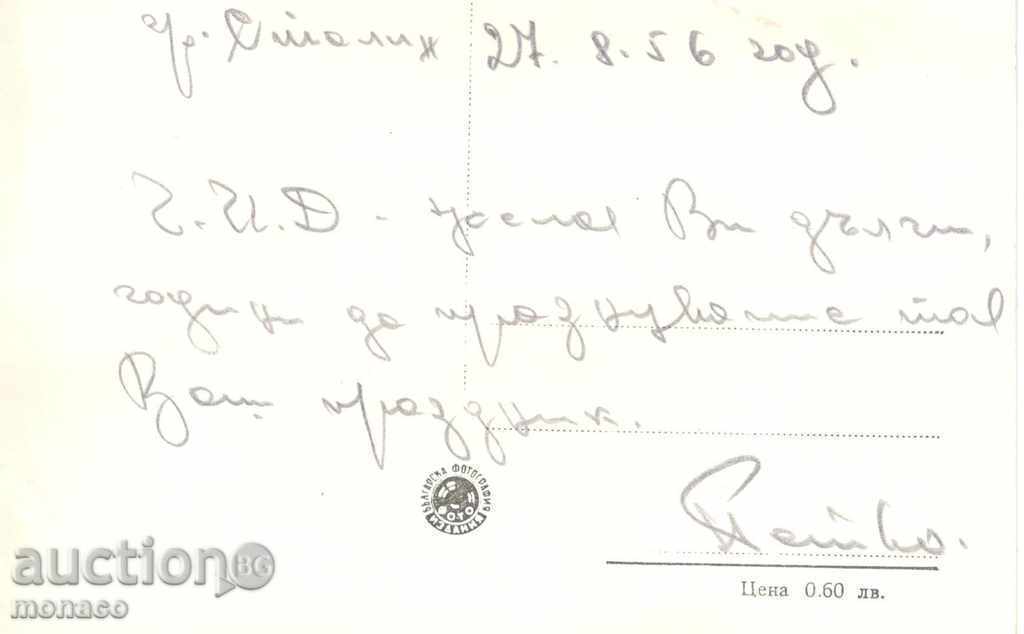 гр. Сталин 27. 8. 56 год.
Ч.И.Д - желая Ви дълги,
години да празнувате тоя
Ваш празник.
Петко.
БЪЛГАРСКА ФОТОГРАФИЯ
ФОТО
ИЗДАНИЯ
Цена 0.60 лв.
auction BG
monaco